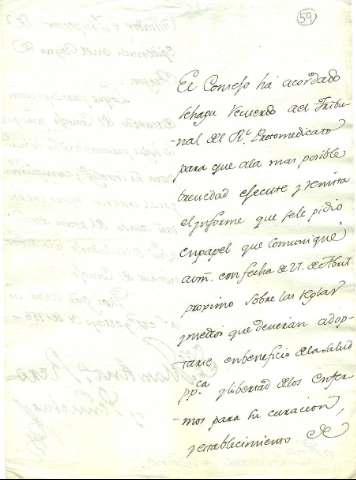 59
El Consejo há acordado
se haga recuerdo al Tribu-
-nal del R.l Protomedicato
para que ala mas posible
brevedad efecute y remita
el informe que sele pidió
en papel que comuniqué
a vm. con fecha de 27. de Abril
proximo sobre las reglas
y medios que deverian adop-
tarse en beneficio dela salud
pp.ca y libertad delos enfer-
mos para su curacion,
y establecimiento de